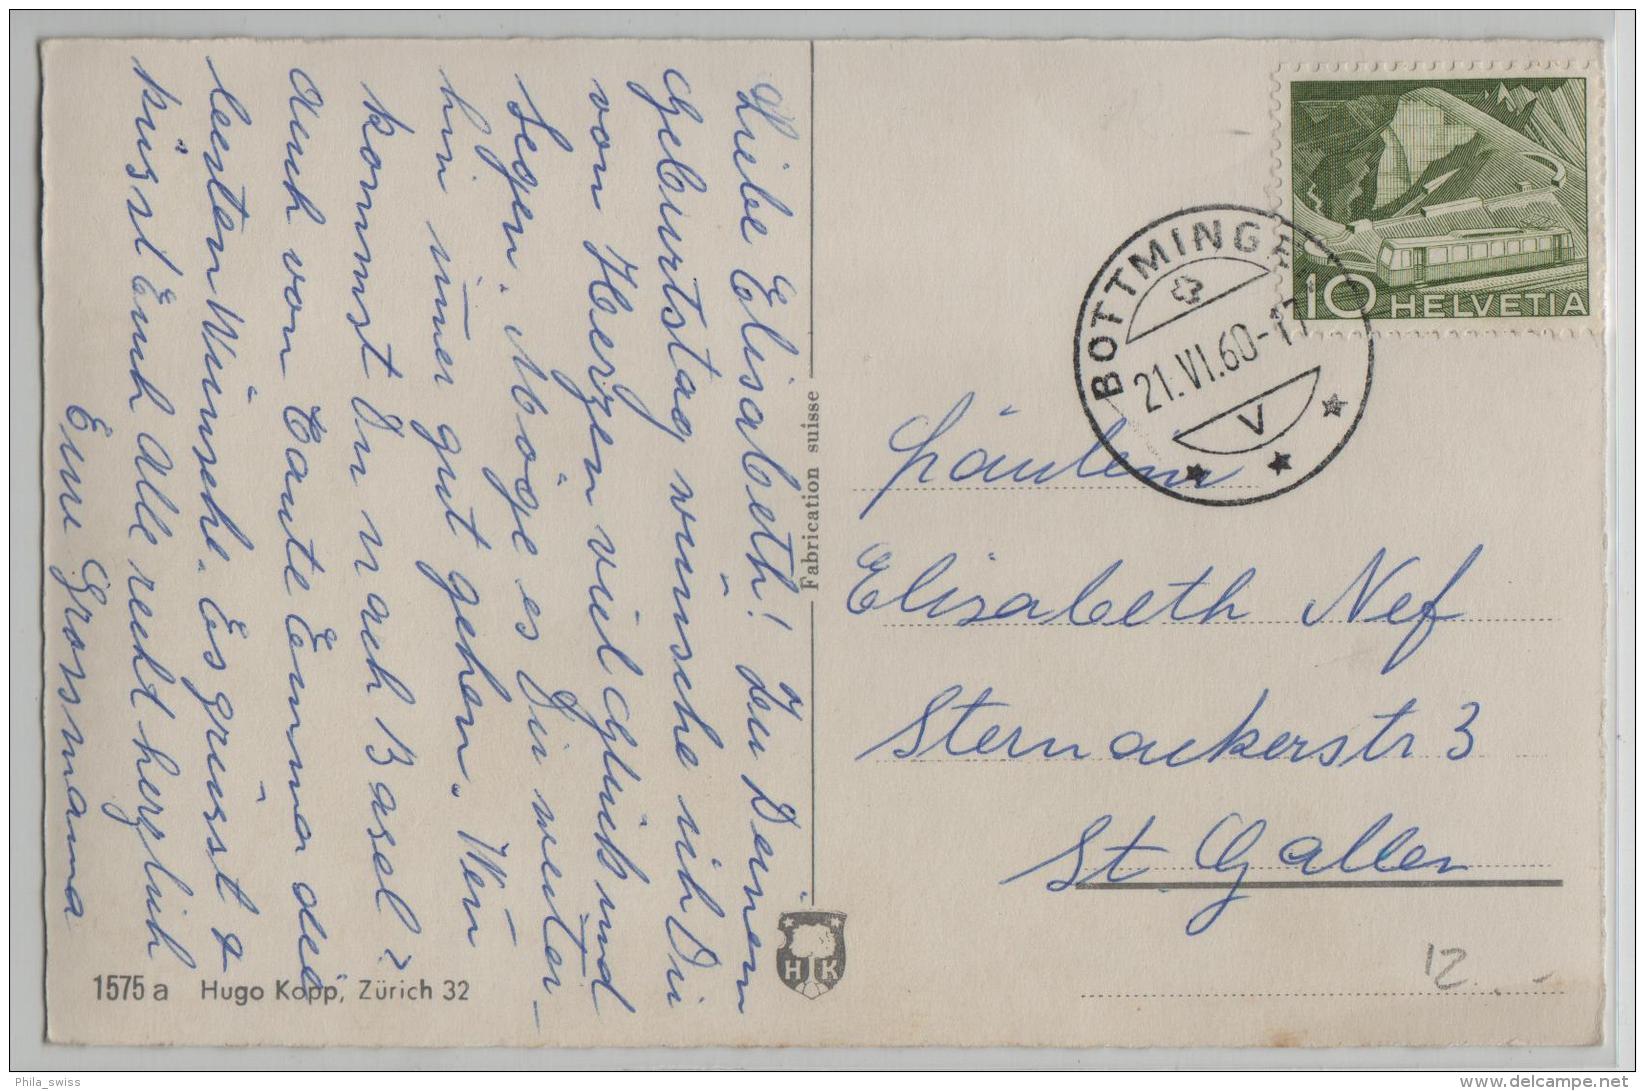 Liebe Elisabeth! Zu Deinem
Geburtstag wünsche ich Dir
von Herzen viel Glück und
Segen. Möge es Dir weiter-
hin im̄er gut gehen. Wen̄
kommst Du nach Basel?
Auch von Tante Emma die
besten Wünsche. Es grüsst &
küsst Euch alle recht herzlich
Eure Grossmama
1575 a Hugo Kopp, Zürich 32
Fabrication suisse
H K
HELVETIA
10
BOTTMINGEN
21.VI.60-17
V
Fräulein
Elisabeth Nef
Sternackerstr 3
St. Gallen
12.-
Phila_swiss
www.delcampe.net